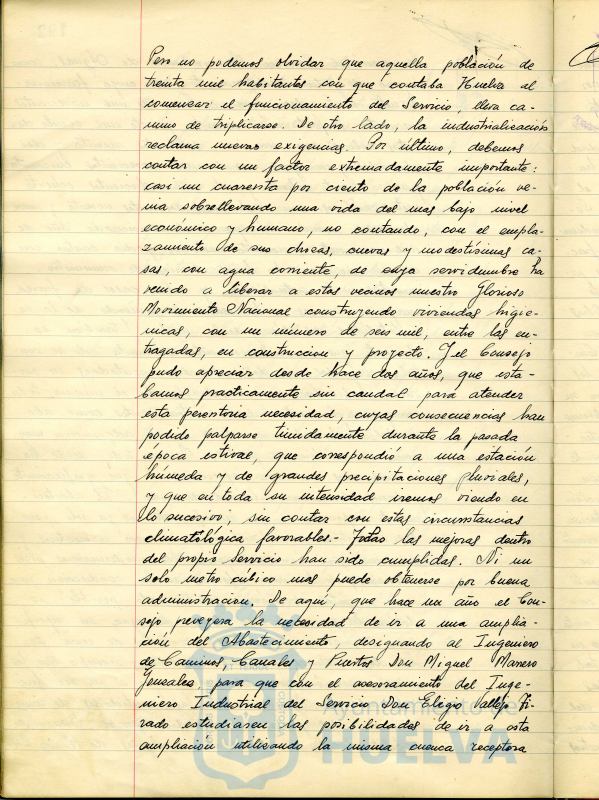 Pero no podemos olvidar que aquella población de
treinta mil habitantes con que contaba Huelva al
comenzar el funcionamiento del Servicio, lleva ca-
mino de triplicarse. De otro lado, la industrialización
reclama nuevas exigencias. Por último, debemos
contar con un factor extremadamente importante:
casi un cuarenta por ciento de la población ve-
nia sobrellevando una vida del mas bajo nivel
económico y humano, no contando, con el empla-
zamiento de sus chozas, cuevas y modestísimas ca-
sas, con agua corriente, de cuya servidumbre ha
venido a liberar a estos vecinos nuestro Glorioso
Movimiento Nacional construyendo viviendas higie-
nicas, con un número de seis mil, entre las en-
tragadas, en construccion y proyecto. Y el Consejo
pudo apreciar desde hace dos años, que esta-
bamos practicamente sin caudal para atender
esta perentoria necesidad, cuyas consecuencias han
podido palparse timidamente durante la pasada
época estival, que correspondió a una estación
húmeda y de grandes precipitaciones pluviales,
y que en toda su intensidad iremos viendo en
lo sucesivo, sin contar con estas circunstancias
climatológica favorables.- Todas las mejoras dentro
del propio Servicio han sido cumplidas. Ni un
sólo metro cúbico mas puede obtenerse por buena
administracion. De aquí, que hace un año el Con-
sejo preveyera la necesidad de ir a una amplia-
ción del Abastecimiento, designando al Ingeniero
de Caminos, Canales y Puertos Don Miguel Marrero
Gonzales, para que con el asesoramiento del Inge-
niero Industrial del Servicio Don Eligio Vallejo Ti-
rado estudiasen las posibilidades de ir a esta
ampliación utilizando la misma cuenca receptora
Ayuntamiento de
HUELVA